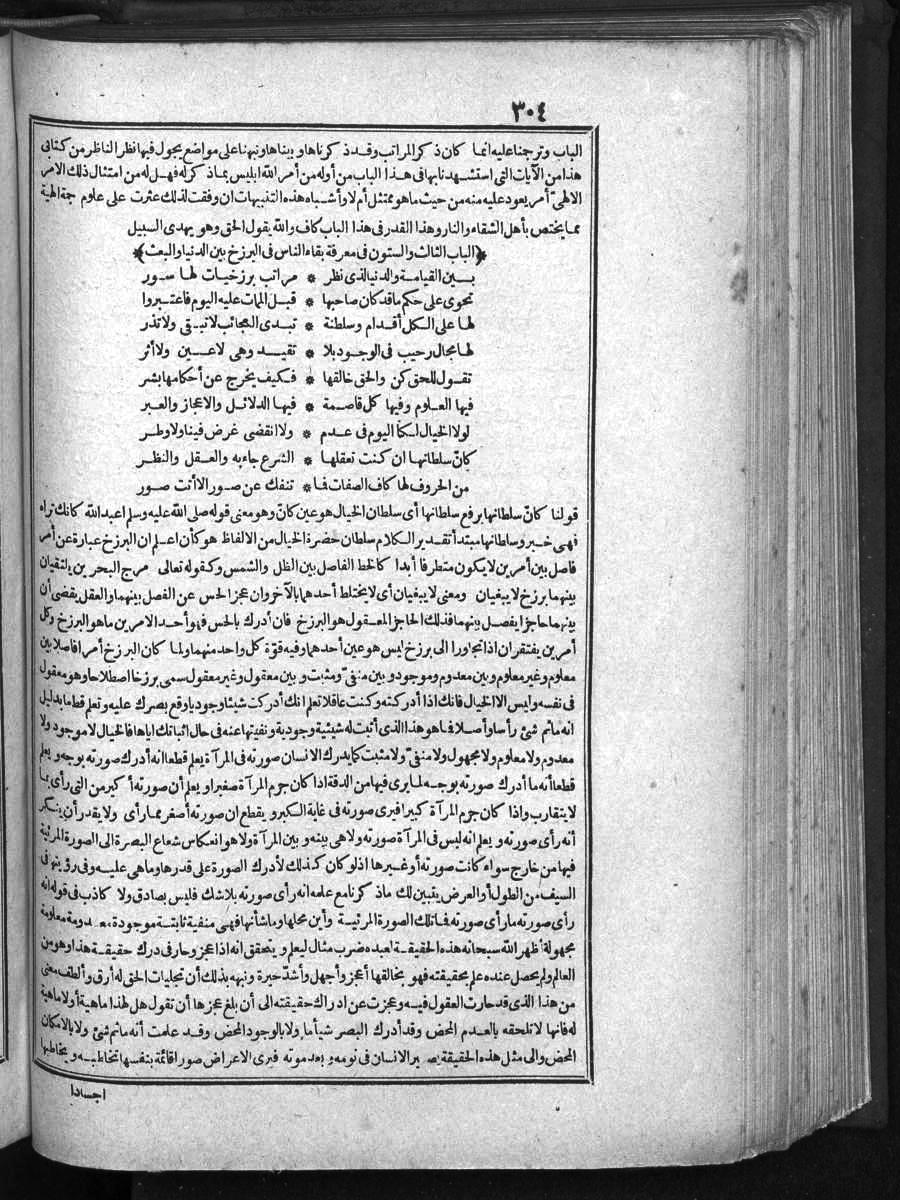 ٣٠٤
الباب وترجمنا عليه انما كان ذكر المراتب وقد ذكرناها وبيناها ونبهنا على مواضع يجول فيها نظر الناظر من كتابى
هذا من الآيات التى استشهدنا بها فى هذا الباب من أوله من أمر الله ابليس بما ذكر له فهل له من امتثال ذلك الامر
الالهىّ أمر يعود عليه منه من حيث ما هو ممتثل أم لا وأشباه هذه التنبيهات ان وفقت لذلك عثرت على علوم جمة الهية
مما يختص بأهل الشقاء والنار وهذا القدر فى هذا الباب كاف والله يقول الحق وهو يهدى السبيل
﴿الباب الثالث والستون فى معرفة بقاء الناس فى البرزخ بين الدنيا والبعث﴾
بين القيامة والدنيا لذى نظر * مراتب برزخيات لها سور
تحوى على حكم ما قد كان صاحبها * قبل الممات عليه اليوم فاعتبروا
لها على الكل أقدام وسلطنة * تبدى العجائب لا تبقى ولا تذر
لها مجال رحيب فى الوجود بلا * تقييد وهى لا عين ولا أثر
تقول للحق كن والحق خالقها * فكيف يخرج عن أحكامها بشر
فيها العلوم وفيها كل قاصمة * فيها الدلائل والاعجاز والعبر
لولا الخيال لكنا اليوم فى عدم * ولا انقضى غرض فينا ولا وطر
كانّ سلطانها ان كنت تعقلها * الشرع جاء به والعقل والنظر
من الحروف لها كاف الصفات فما * تنفك عن صور الا أتت صور
قولنا كانّ سلطانها برفع سلطانها أى سلطان الخيال هو عين كانّ وهو معنى قوله صلى الله عليه وسلم اعبد الله كانك تراه
فهى خبر وسلطانها مبتدأ تقدير الكلام سلطان حضرة الخيال من الالفاظ هو كأن اعلم ان البرزخ عبارة عن أمر
فاصل بين أمرين لا يكون متطرفا أبدا كالخط الفاصل بين الظل والشمس وكقوله تعالى مرج البحرين يلتقيان
بينهما برزخ لا يبغيان ومعنى لا يبغيان أى لا يختلط أحدهما بالآخر وان عجز الحس عن الفصل بينهما والعقل يقضى أن
بينهما حاجزا يفصل بينهما فذلك الحاجز المعقول هو البرزخ فان أدرك بالحس فهو أحد الامرين ما هو البرزخ وكل
أمرين يفتقران اذا تجاورا الى برزخ ليس هو عين أحدهما وفيه قوّة كل واحد منهما ولما كان البرزخ أمرا فاصلا بين
معلوم وغير معلوم وبين معدوم وموجود وبين منفىّ ومثبت وبين معقول وغير معقول سمى برزخا اصطلاحا وهو معقول
فى نفسه وليس الا الخيال فانك اذا أدركته وكنت عاقلا تعلم انك أدركت شيئا وجوديا وقع بصرك عليه وتعلم قطعا بدليل
انه ماثم شئ رأسا وأصلا فما هو هذا الذى أثبت له شيئية وجودية ونفيتها عنه فى حال اثباتك اياها فالخيال لا موجود ولا
معدوم ولا معلوم ولا مجهول ولا منفىّ ولا مثبت كما يدرك الانسان صورته فى المرآة يعلم قطعا انه أدرك صورته بوجه ويعلم
قطعا أنه ما أدرك صورته بوجه لما يرى فيها من الدقة اذا كان جرم المرآة صغيرا ويعلم أن صورته أكبر من التى رأى بما
لا يتقارب واذا كان جرم المرآة كبيرا فيرى صورته فى غاية الكبر ويقطع ان صورته أصغر مما رأى ولا يقدر أن ينكر
أنه رأى صورته ويعلم انه ليس فى المرآة صورته ولا هى بينه وبين المرآة ولا هو انعكاس شعاع البصر الى الصورة المرئية
فيها من خارج سواء كانت صورته أو غيرها اذ لو كان كذلك لأدرك الصورة على قدرها وما هى عليه وفى رؤيتها فى
السيف من الطول أو العرض يتبين لك ما ذكرنا مع علمه انه رأى صورته بلا شك فليس بصادق ولا كاذب فى قوله انه
رأى صورته ما رأى صورته فما تلك الصورة المرئية وأين محلها وما شأنها فهى منفية ثابتة موجودة معدومة معلومة
مجهولة أظهر الله سبحانه هذه الحقيقة لعبده ضرب مثال ليعلم ويتحقق انه اذا عجز وحار فى درك حقيقة هذا وهو من
العالم ولم يحصل عنده علم بحقيقته فهو بخالقها أعجز وأجهل وأشدّ حيرة ونبهه بذلك أن تجليات الحق له أرق وألطف معنى
من هذا الذى قد حارت العقول فيه وعجزت عن ادراك حقيقته الى أن بلغ عجزها أن تقول هل لهذا ماهية أو لا ماهية
له فانها لا تلحقه بالعدم المحض وقد أدرك البصر شيأ ما ولا بالوجود المحض وقد علمت أنه ماثم شئ ولا بالامكان
المحض والى مثل هذه الحقيقة يصير الانسان فى نومه وبعد موته فيرى الاعراض صورا قائمة بنفسها تخاطبه ويخاطبها
اجسادا